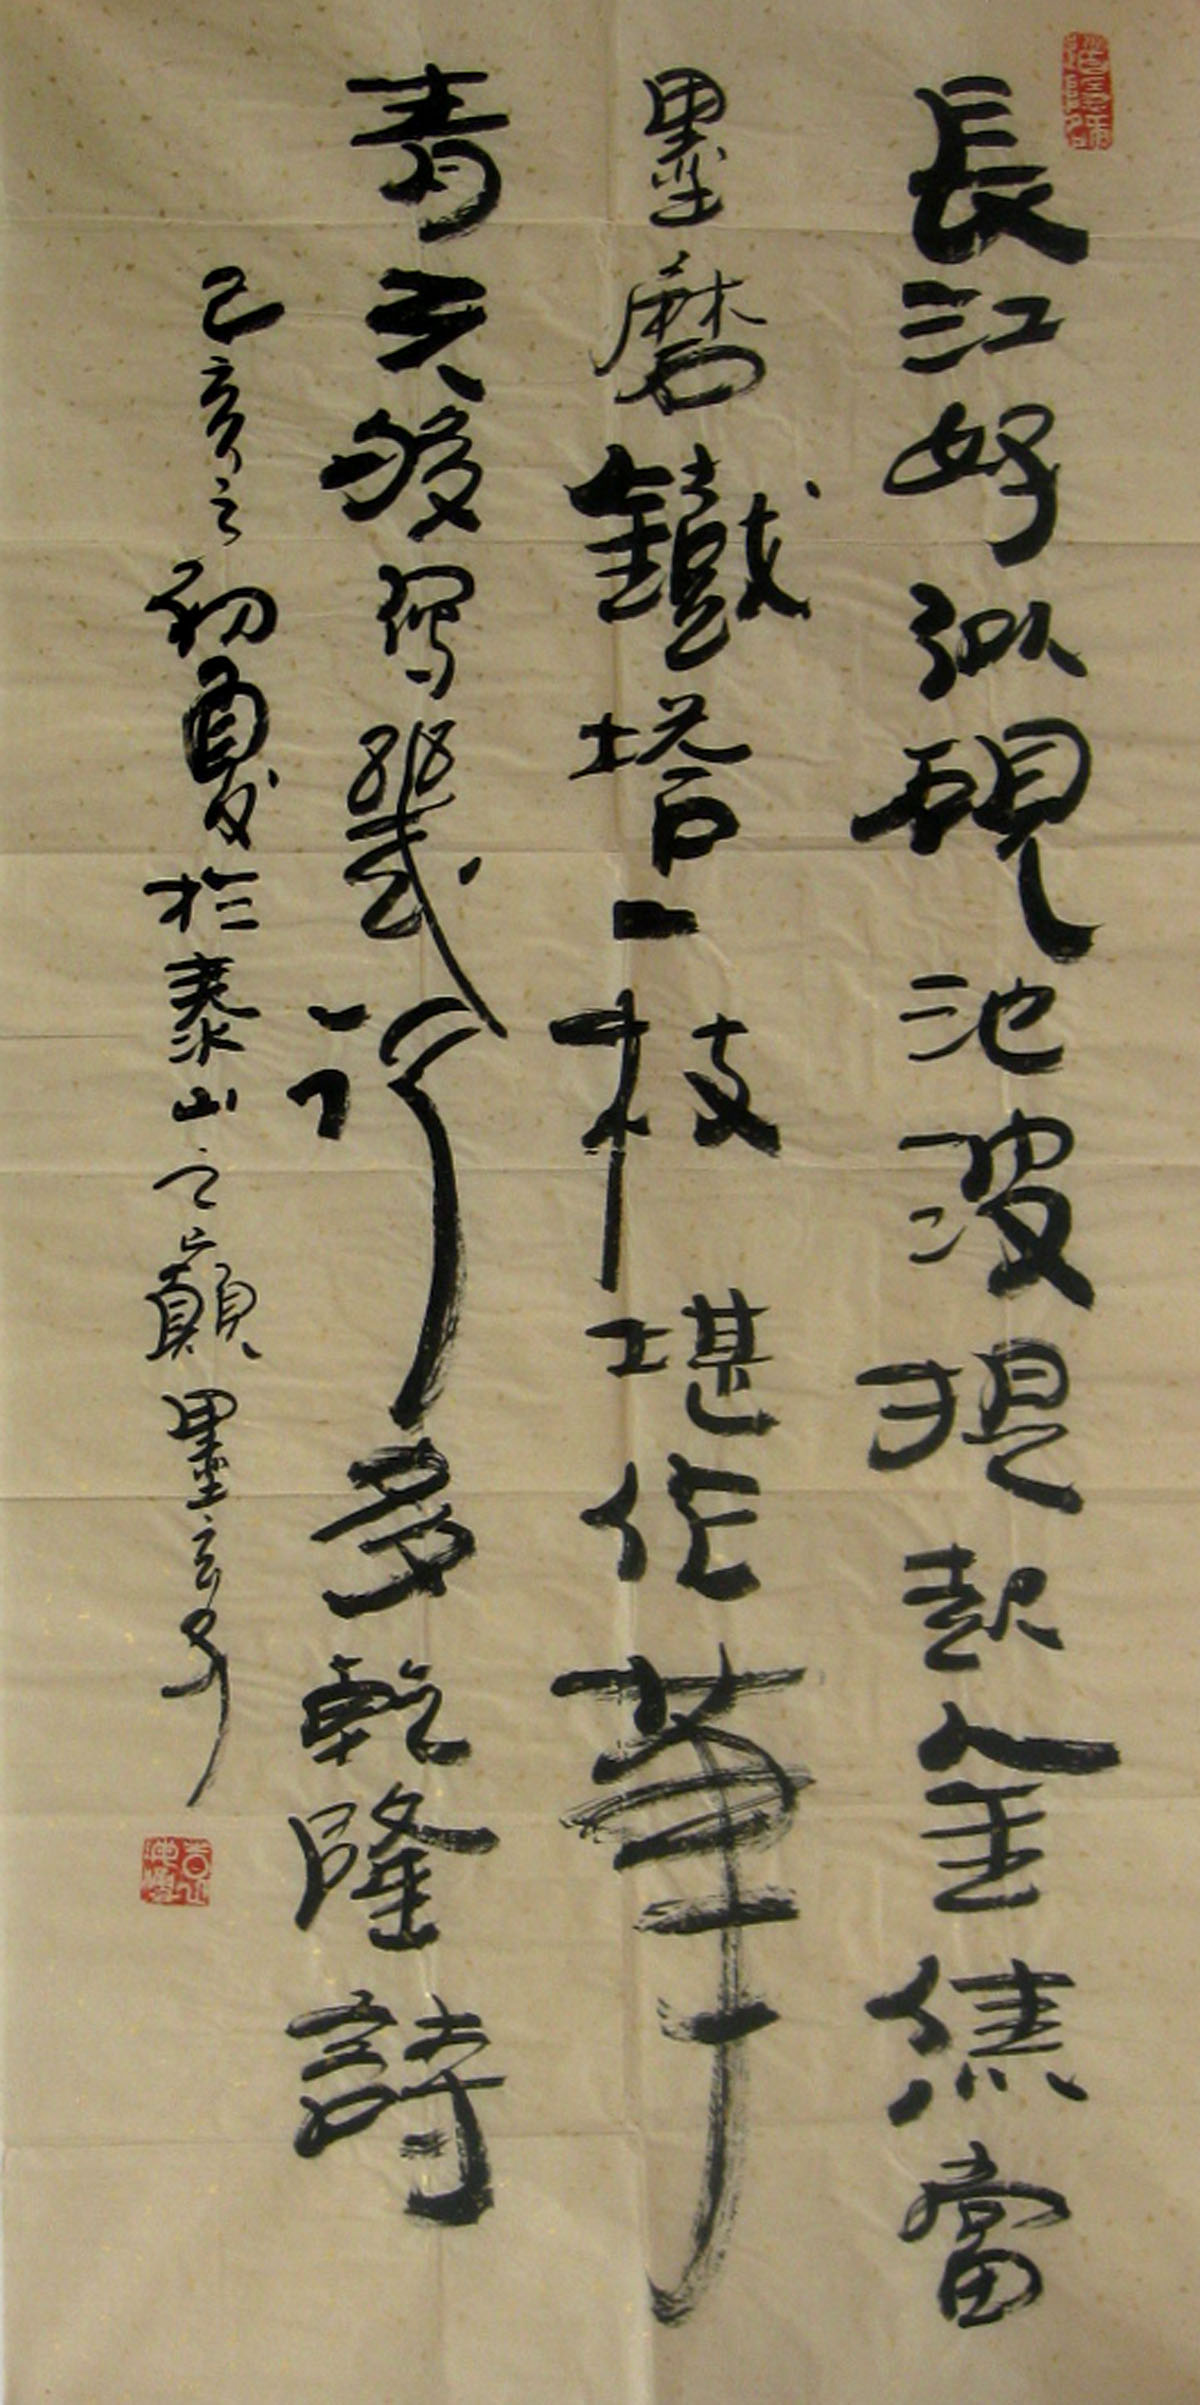 長江好似硯池波提起金焦當
墨磨鐵塔一枝堪作筆
青天够寫幾行多乾隆詩
己亥之初夏於泰山之巔墨玄